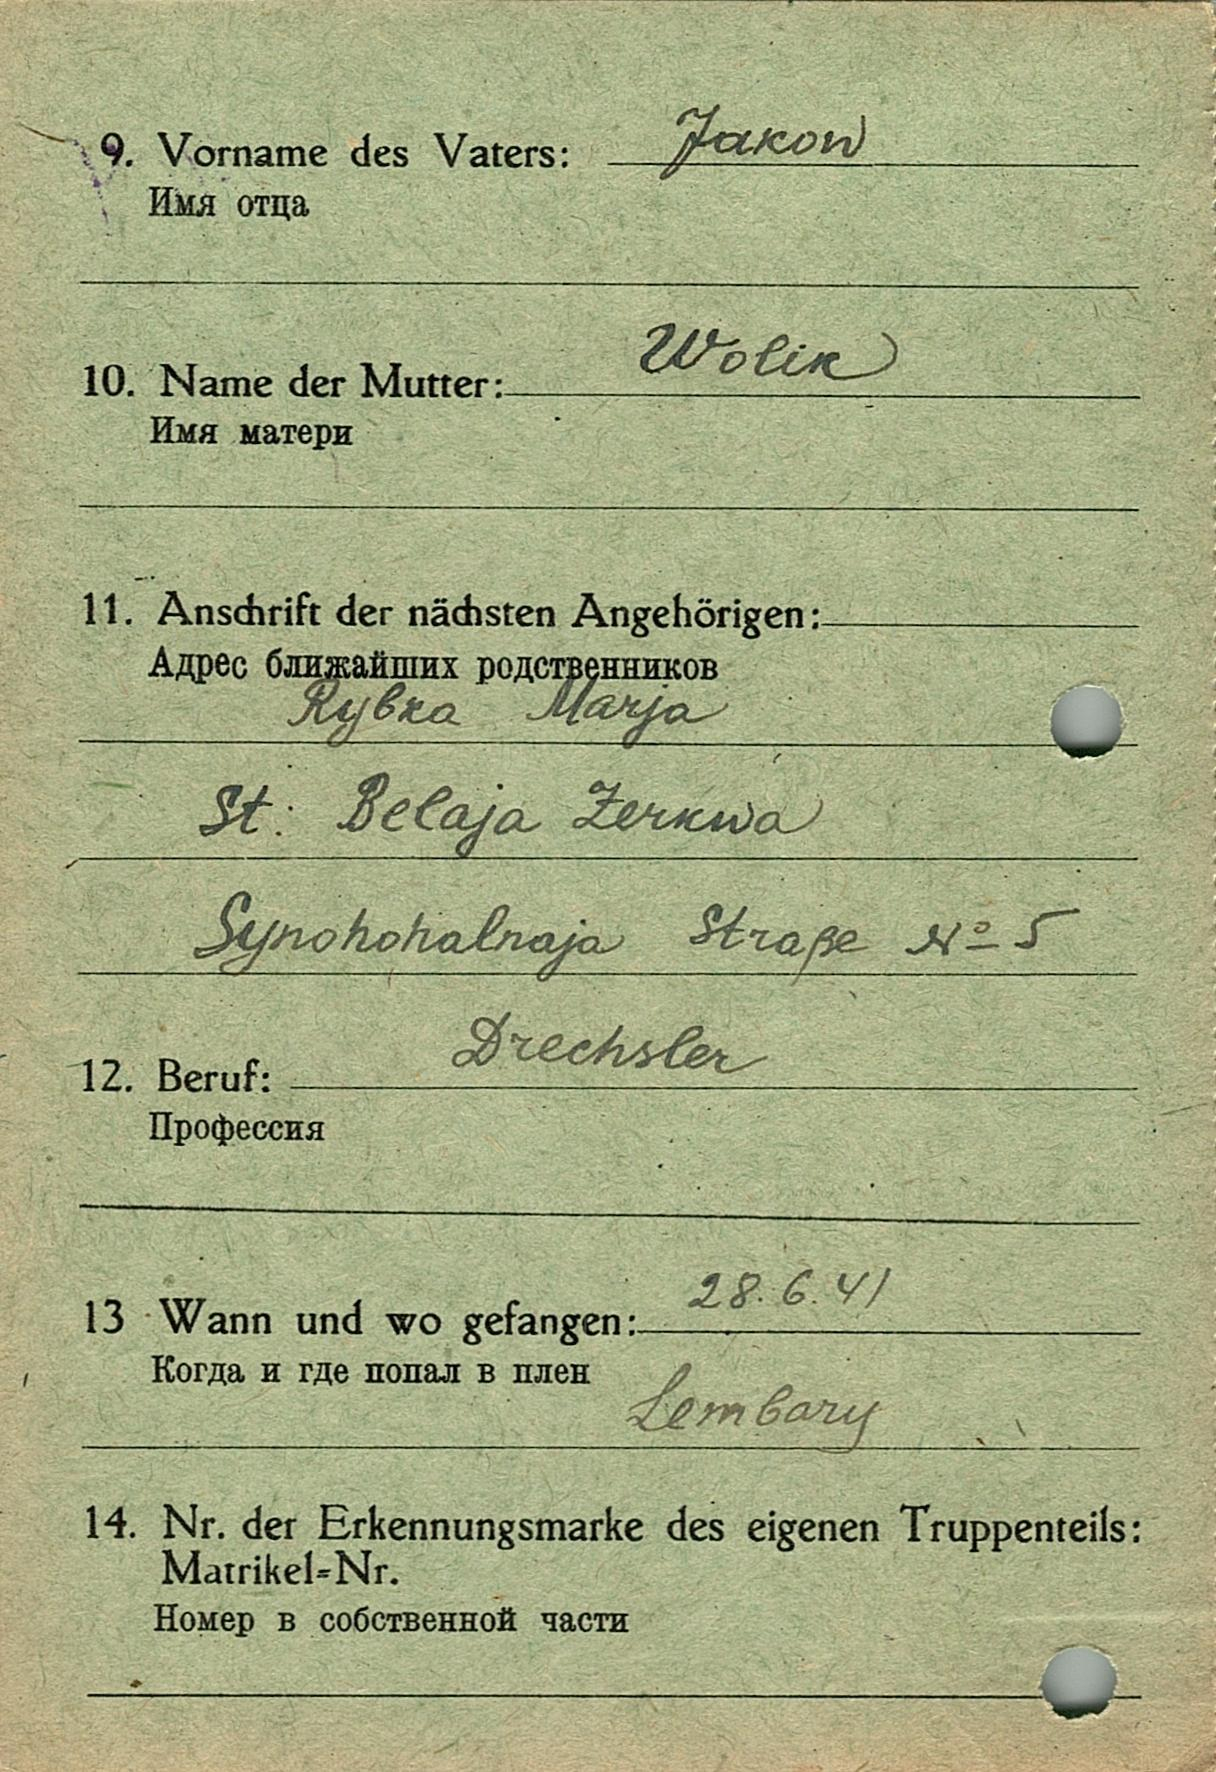 9. Vorname des Vaters: Jakow
Имя отца
10. Name der Mutter: Wolik
Имя матери
11. Anschrift der nächsten Angehörigen:
Адрес ближайших родственников
Rybka Marja
St: Belaja Zerkwa
Synohohalnaja Straße № 5
12. Beruf: Drechsler
Профессия
13 Wann und wo gefangen: 28.6.41
Когда и где попал в плен
Lembary
14. Nr. der Erkennungsmarke des eigenen Truppenteils:
Matrikel=Nr.
Номер в собственной части